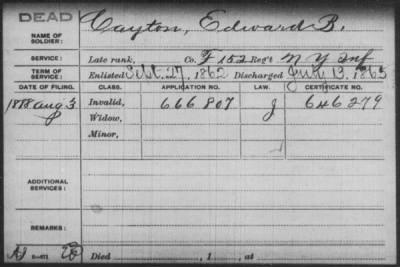 DEAD
NAME OF SOLDIER: Cayton, Edward B.
SERVICE: Late rank, Co. F 152 Reg't N Y Inf
TERM OF SERVICE: Enlisted Sept. 27, 1862 Discharged July 13, 1865
DATE OF FILING. CLASS. APPLICATION NO. LAW. CERTIFICATE NO.
1888 Aug 3 Invalid, 666 807 J 646 279
Widow,
Minor,
ADDITIONAL SERVICES:
REMARKS:
Died , 1 , at